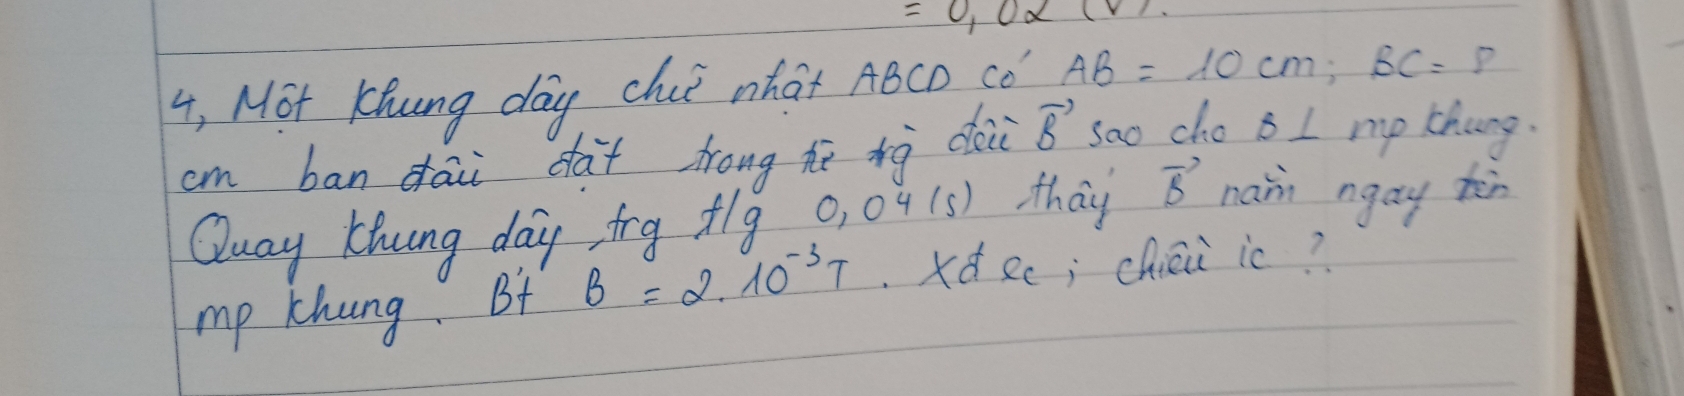 = 0,02 (V).
4, Một khung dây chữ nhật ABCD có AB = 10 cm; BC = 8
cm ban đầu đặt trong từ tg đều B⃗ sao cho B ⊥ mp khung.
Quay khung dây trg t/g 0,04 (s) thấy B⃗ nằm ngay trên
mp khung. Bt B = 2.10⁻³T. Xđ ec; chiều ic ?